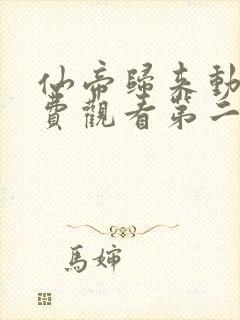 仙帝歸來動
費觀看第二
馬嬸